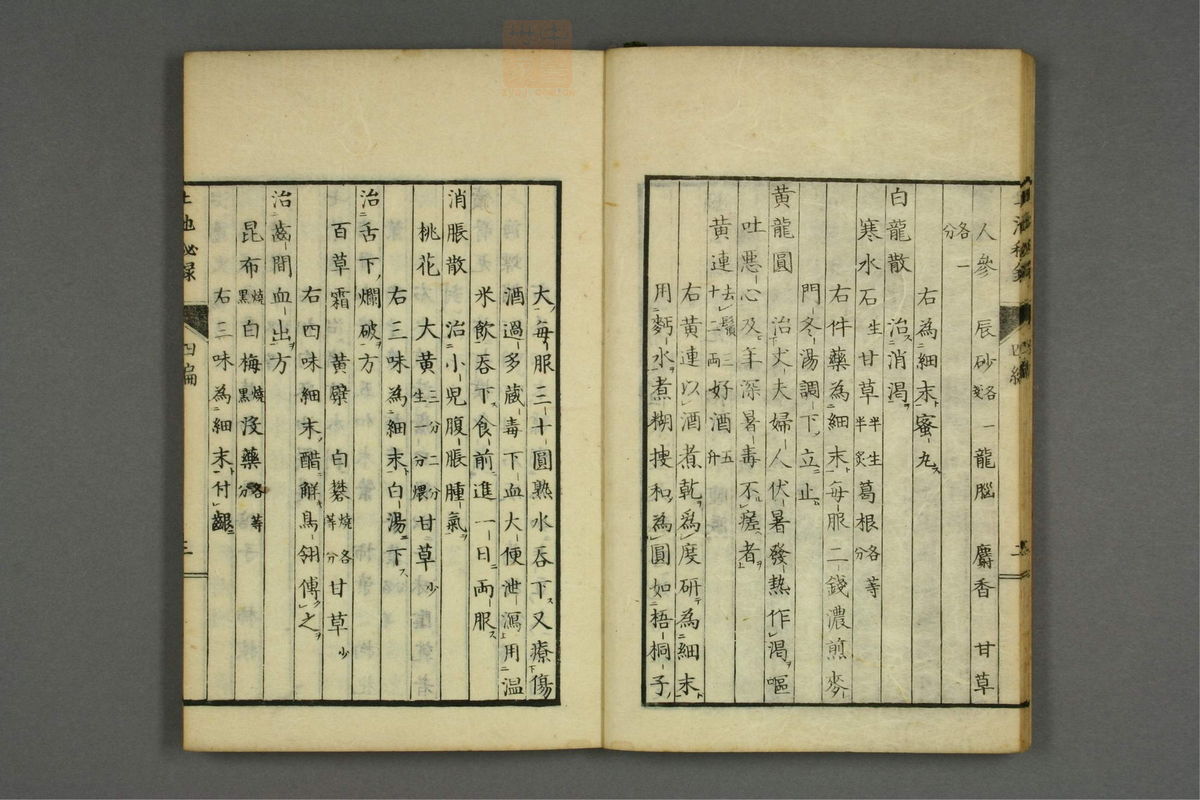 人參 辰砂各一戔 龍腦 麝香 甘草
各一分
右為細末蜜丸
白龍散 治消渴
寒水石生 甘草半生半炙 葛根各等分
右件藥為細末每服二錢濃煎麥
門冬湯調下立止
黃龍圓 治丈夫婦人伏暑發熱作渴嘔
吐惡心及年深暑毒不瘥者
黃連去鬚三十二兩 好酒五升
右黃連以酒煮乾為度研為細末
用麪水煮糊搜和為圓如梧桐子
四編
大每服三十圓熟水吞下又療傷
酒過多藏毒下血大便泄瀉用温
米飲吞下食前進一日兩服
消脹散 治小兒腹脹腫氣
桃花 大黃三分生一分煨二分 甘草少
右三味為細末白湯下
治舌下爛破方
百草霜 黃檗 白礬燒各等分 甘草少
右四味細末醋觧鳥翎傅之
治齒間血出方
昆布燒黑 白梅燒黑 沒藥各等分
右三味為細末付齦
四編 三